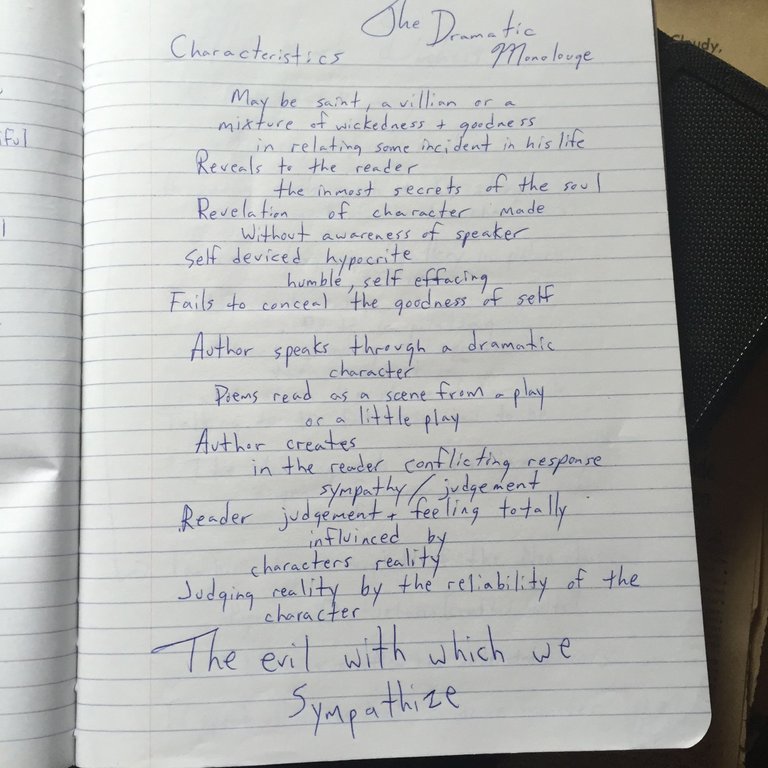 The Dramatic
Monolouge
Characteristics
May be saint, a villian or a
mixture of wickedness + goodness
in relating some incident in his life
Reveals to the reader
the inmost secrets of the soul
Revelation of character made
without awareness of speaker
Self deviced hypocrite
humble, self effacing
Fails to conceal the goodness of self
Author speaks through a dramatic
character
Poems read as a scene from a play
or a little play
Author creates
in the reader conflicting response
sympathy / judgement
Reader judgement + feeling totally
influinced by
characters reality
Judging reality by the reliability of the
character
The evil with which we
Sympathize